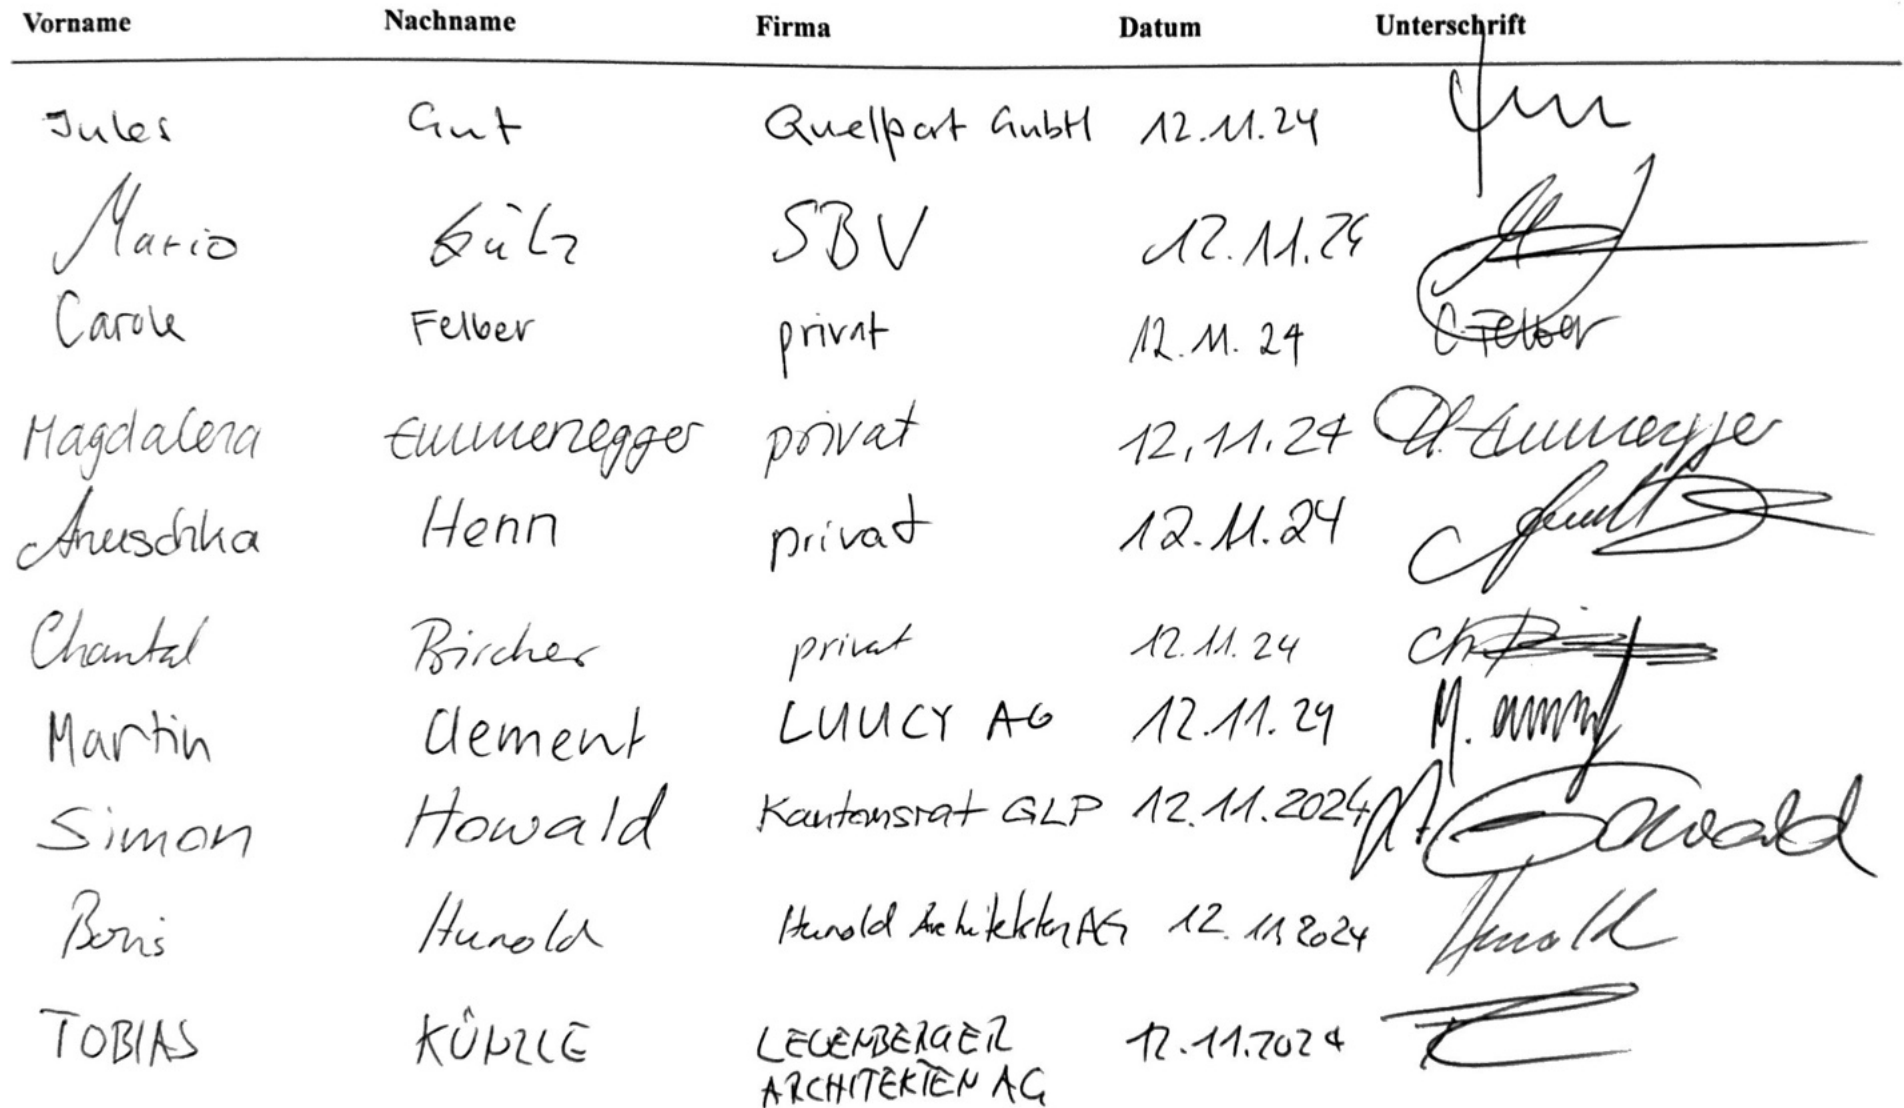 Vorname Nachname Firma Datum Unterschrift
Jules Gut Quelpart GmbH 12.11.24
Mario Gülz SBV 12.11.24
Carole Felber privat 12.11.24 C. Felber
Magdalena Emmenegger privat 12.11.24 M. Emmenegger
Anuschka Henn privat 12.11.24
Chantal Bircher privat 12.11.24
Martin Clement LUUCY AG 12.11.24
Simon Howald Kantonsrat GLP 12.11.2024 Howald
Boris Hunold Hunold Architekten AG 12.11.2024 Hunold
TOBIAS KÜNZLE LEUENBERGER 12.11.2024
ARCHITEKTEN AG